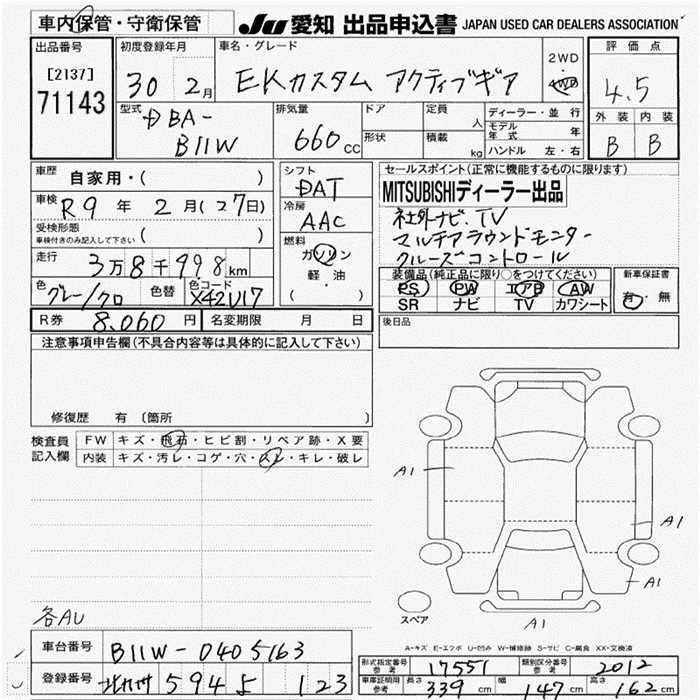 車内保管・守衛保管
JU 愛知 出品申込書 JAPAN USED CAR DEALERS ASSOCIATION
出品番号
[2137]
71143
初度登録年月
30 2月
車名・グレード
EKカスタム アクティブギア
2WD
4WD
評価点
4.5
外装 内装
B B
型式
DBA-
B11W
排気量
660 CC
ドア
形状
定員 人
積載 kg
ディーラー・並行
モデル年式 年
ハンドル 左・右
車歴 自家用・( )
車検 R9 年 2月(27日)
受検形態
車検付きのみ記入して下さい ( )
走行 3万8千998km
色 グレー/クロ
色替
色コード X42U17
シフト
DAT
冷房
AAC
燃料
ガソリン
軽・油
( )
セールスポイント(正常に機能するものに限ります)
MITSUBISHIディーラー出品
社外ナビ.TV
マルチアラウンドモニター
クルーズコントロール
装備品(純正品に限り○をつけてください)
PS PW エアB AW
SR ナビ TV カワシート
新車保証書
有・無
R券 8,060円
名変期限 月 日
後日品
注意事項申告欄(不具合内容等は具体的に記入して下さい)
修復歴 有〔箇所
検査員記入欄
FW キズ・飛石・ヒビ割・リペア跡・X要
内装 キズ・汚レ・コゲ・穴・スレ・キレ・破レ
A1
A1
A1
A1
スペア
各AU
A-キズ E-エクボ U-凹み W-補修跡 S-サビ C-腐食 XX-交換済
車台番号 B11W-0405163
登録番号 594 123
形式指定番号 参考 17551
類別区分番号 参考 2012
車庫証明用 参考 長さ 339cm 幅 147cm 高さ 162cm